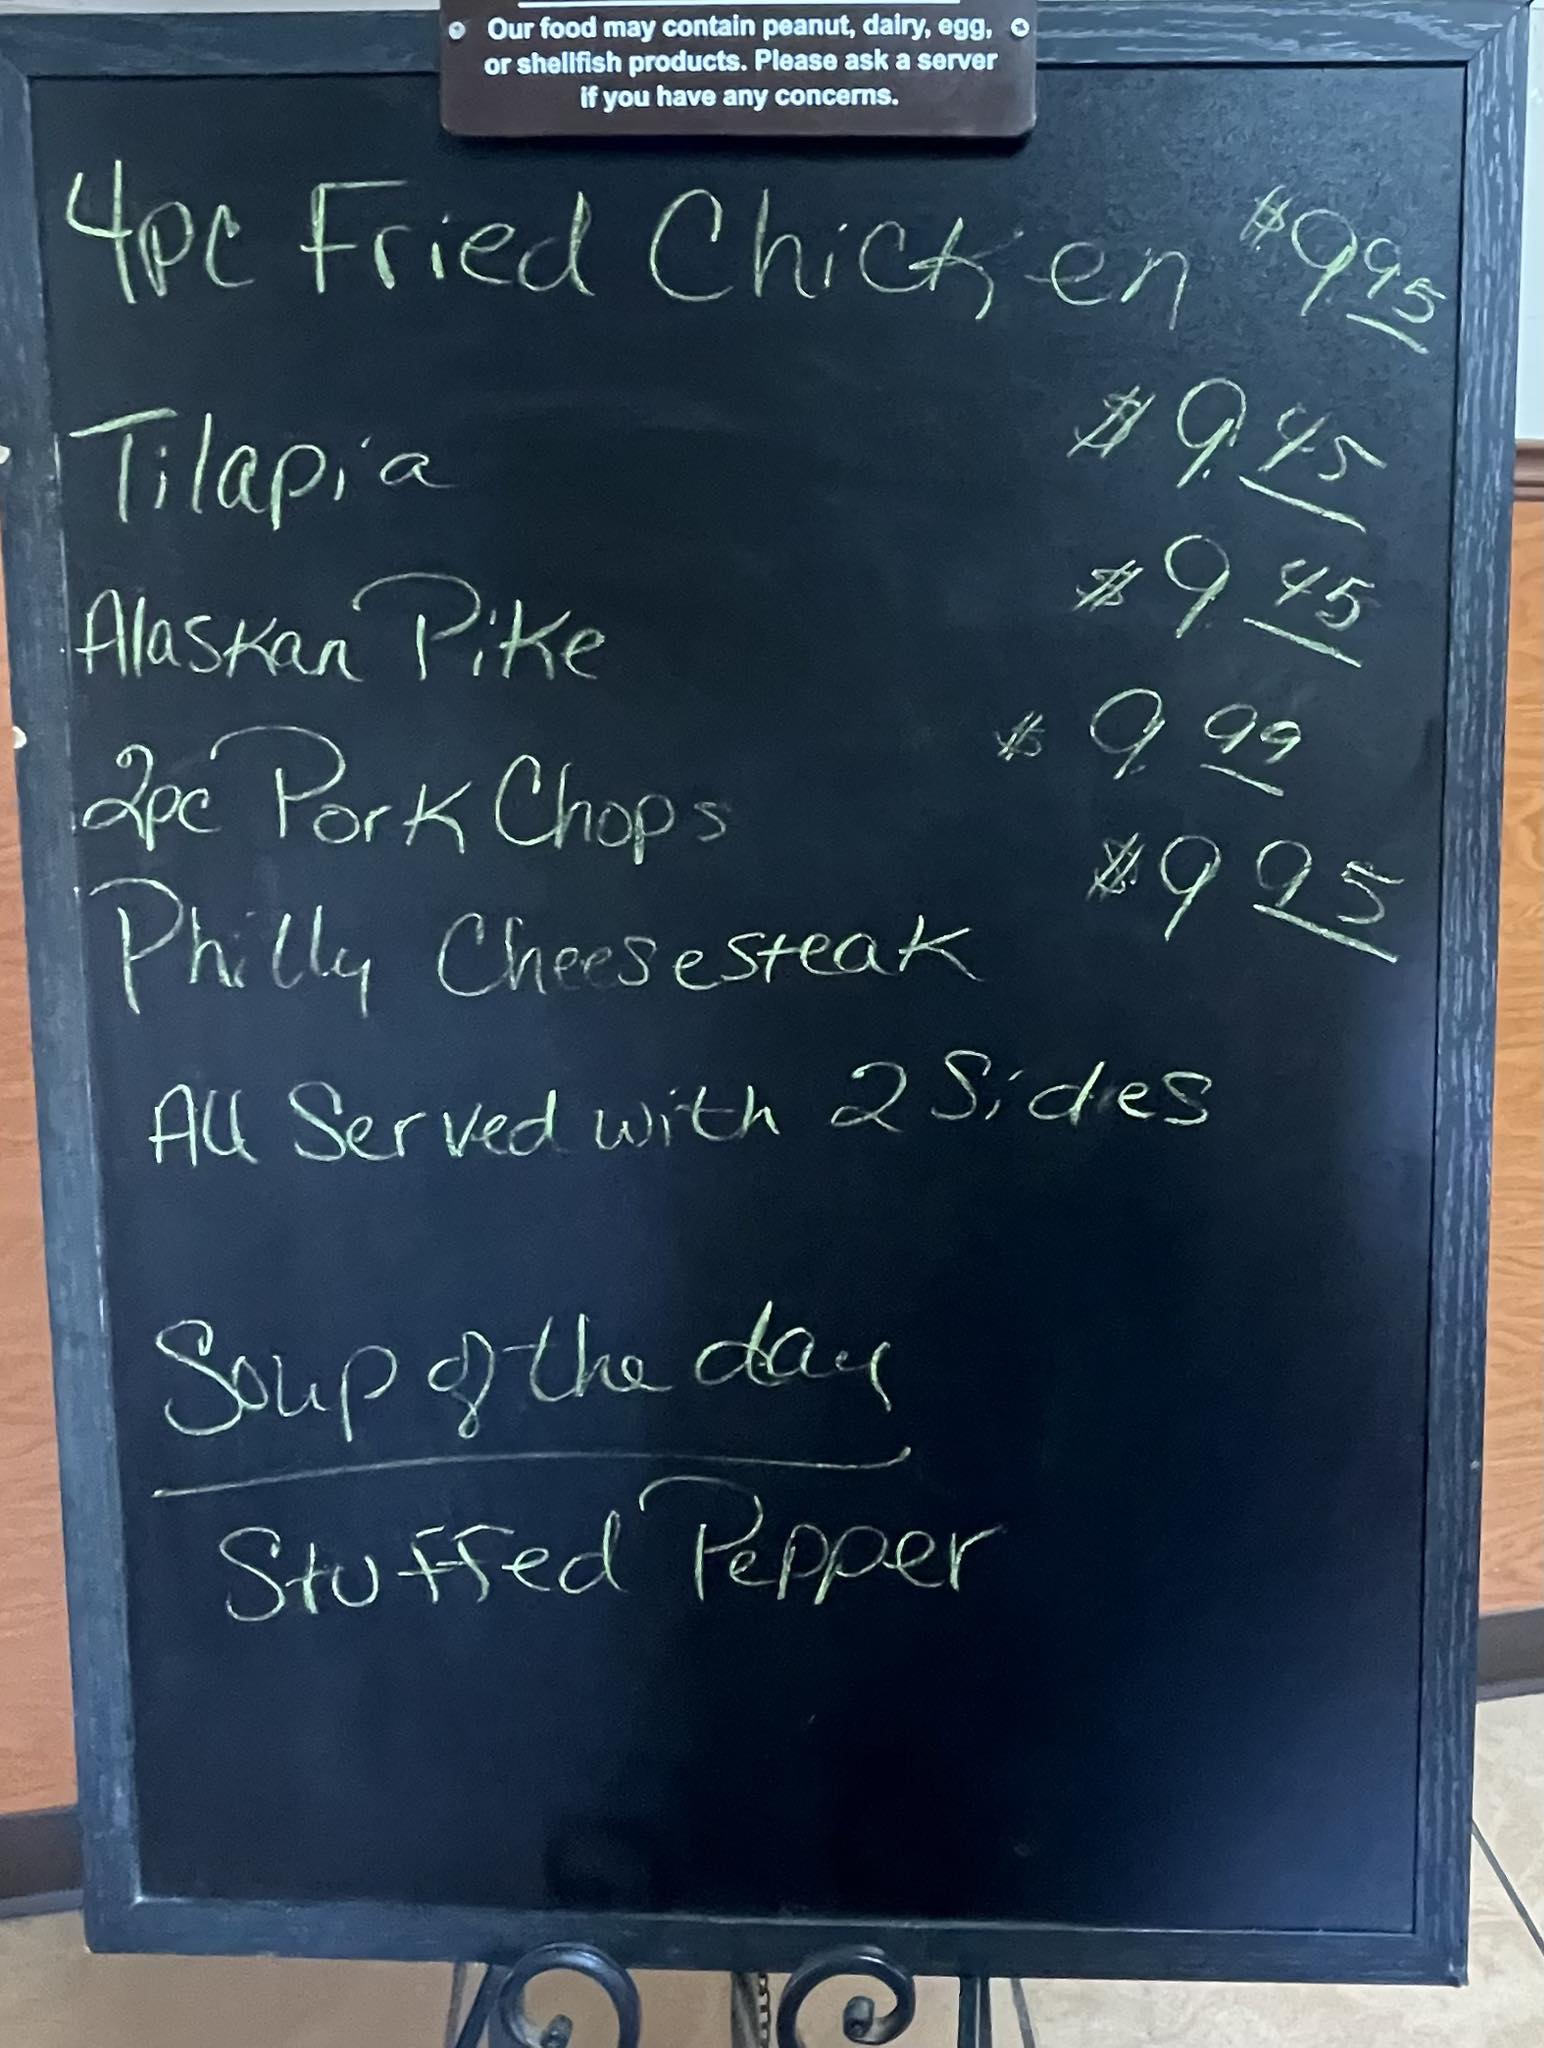 Our food may contain peanut, dairy, egg,
or shellfish products. Please ask a server
if you have any concerns.
4pc Fried Chicken $9.95
Tilapia $9.45
Alaskan Pike $9.45
2pc Pork Chops $9.99
Philly Cheesesteak $9.95
All Served with 2 Sides
Soup of the day
Stuffed Pepper